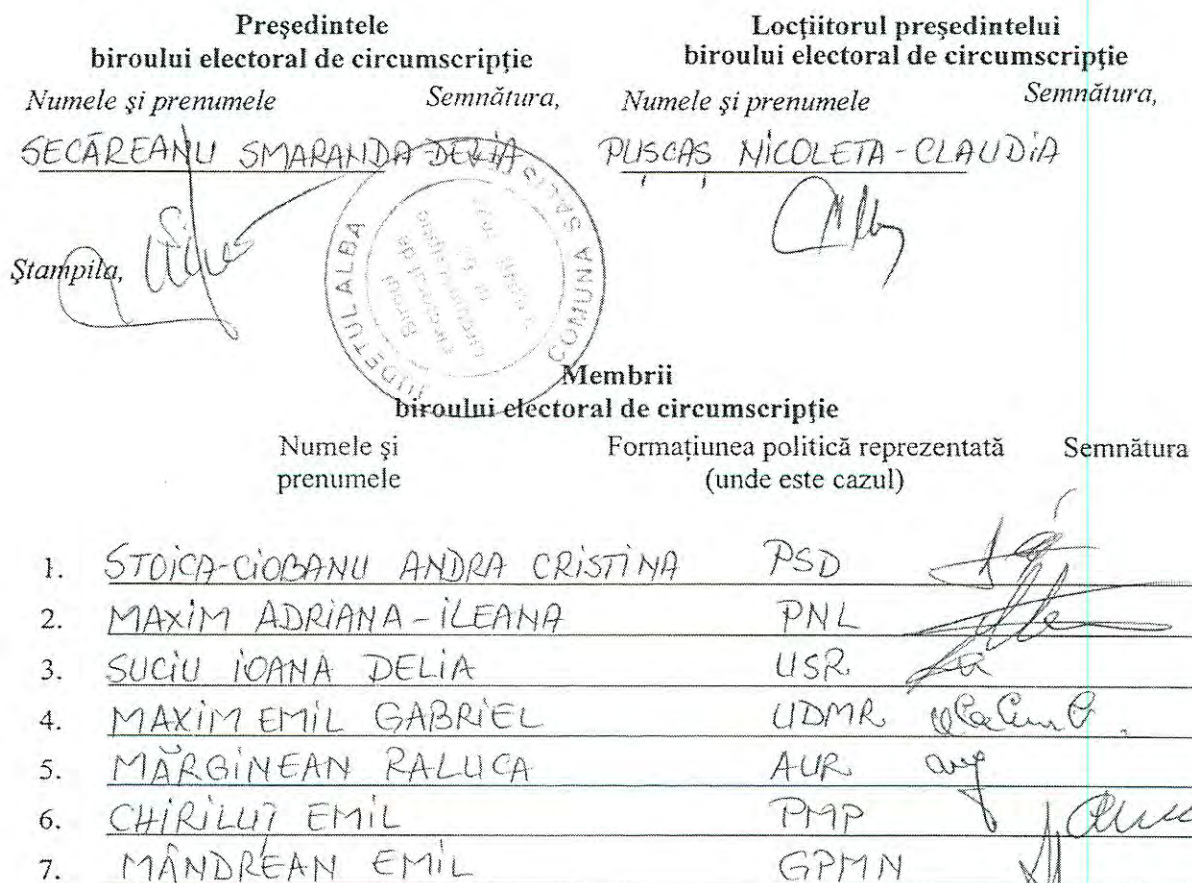 Preşedintele
biroului electoral de circumscripţie
Numele şi prenumele Semnătura,
SECĂREANU SMARANDA DELIA
Ştampila,
Locţiitorul preşedintelui
biroului electoral de circumscripţie
Numele şi prenumele Semnătura,
PUȘCAȘ NICOLETA-CLAUDIA
JUDEŢUL ALBA
COMUNA
Biroul
electoral de
circumscripţie
Membrii
biroului electoral de circumscripţie
Numele şi prenumele Formaţiunea politică reprezentată (unde este cazul) Semnătura
1. STOICA-CIOBANU ANDRA CRISTINA PSD
2. MAXIM ADRIANA-ILEANA PNL
3. SUCIU IOANA DELIA USR
4. MAXIM EMIL GABRIEL UDMR
5. MĂRGINEAN RALUCA AUR
6. CHIRILUȚ EMIL PMP
7. MÂNDREAN EMIL GPMN